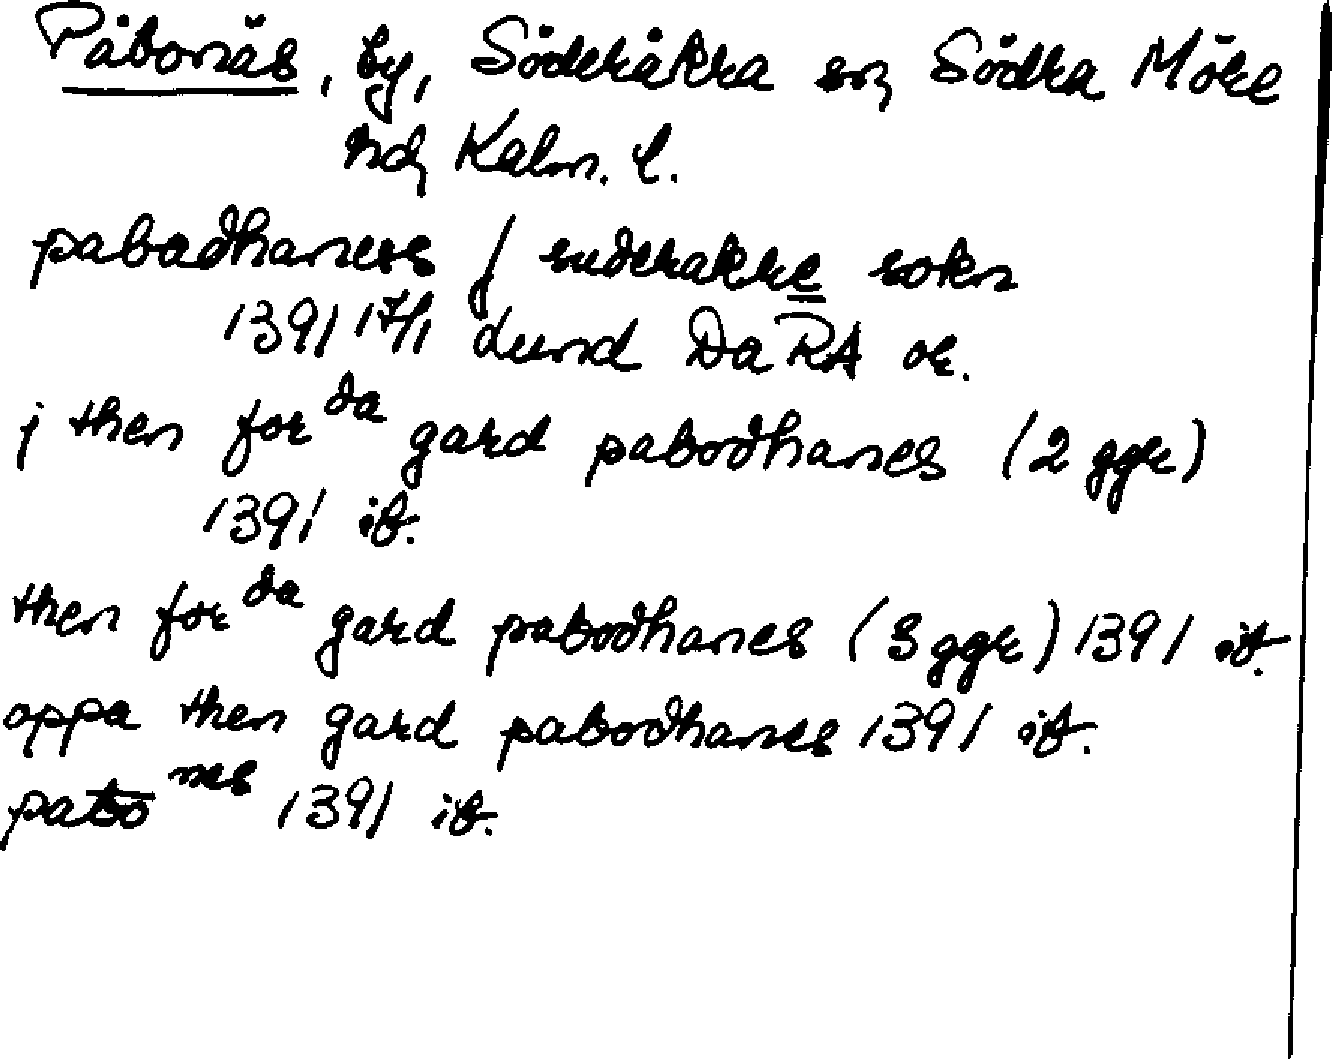 Påbonäs, by, Söderåkra sn, Södra Möre
hd, Kalm. l.
pabadhanees j suderakre sokn
1391 17/1 Lund Da RA or.
j then for da gard pabodhanes (2 ggr)
1391 ib.
then for da gard pabodhanes (3 ggr) 1391 ib.
oppa then gard pabodhanes 1391 ib.
pabo nes 1391 ib.